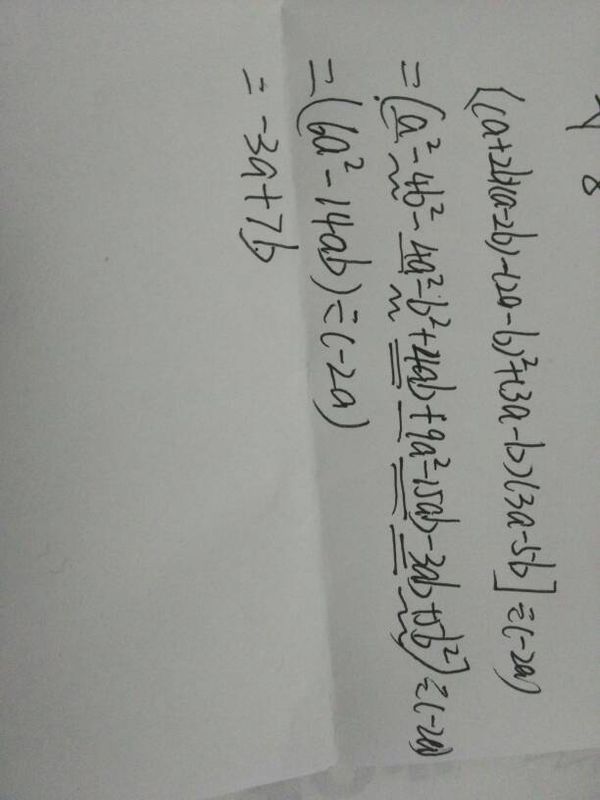 8
[(a+2b)(a-2b)-(2a-b)²+(3a-b)(3a-5b]÷(-2a)
=(a²-4b²-4a²-b²+4ab+9a²-15ab-3ab+5b²)÷(-2a)
=(6a²-14ab)÷(-2a)
=-3a+7b